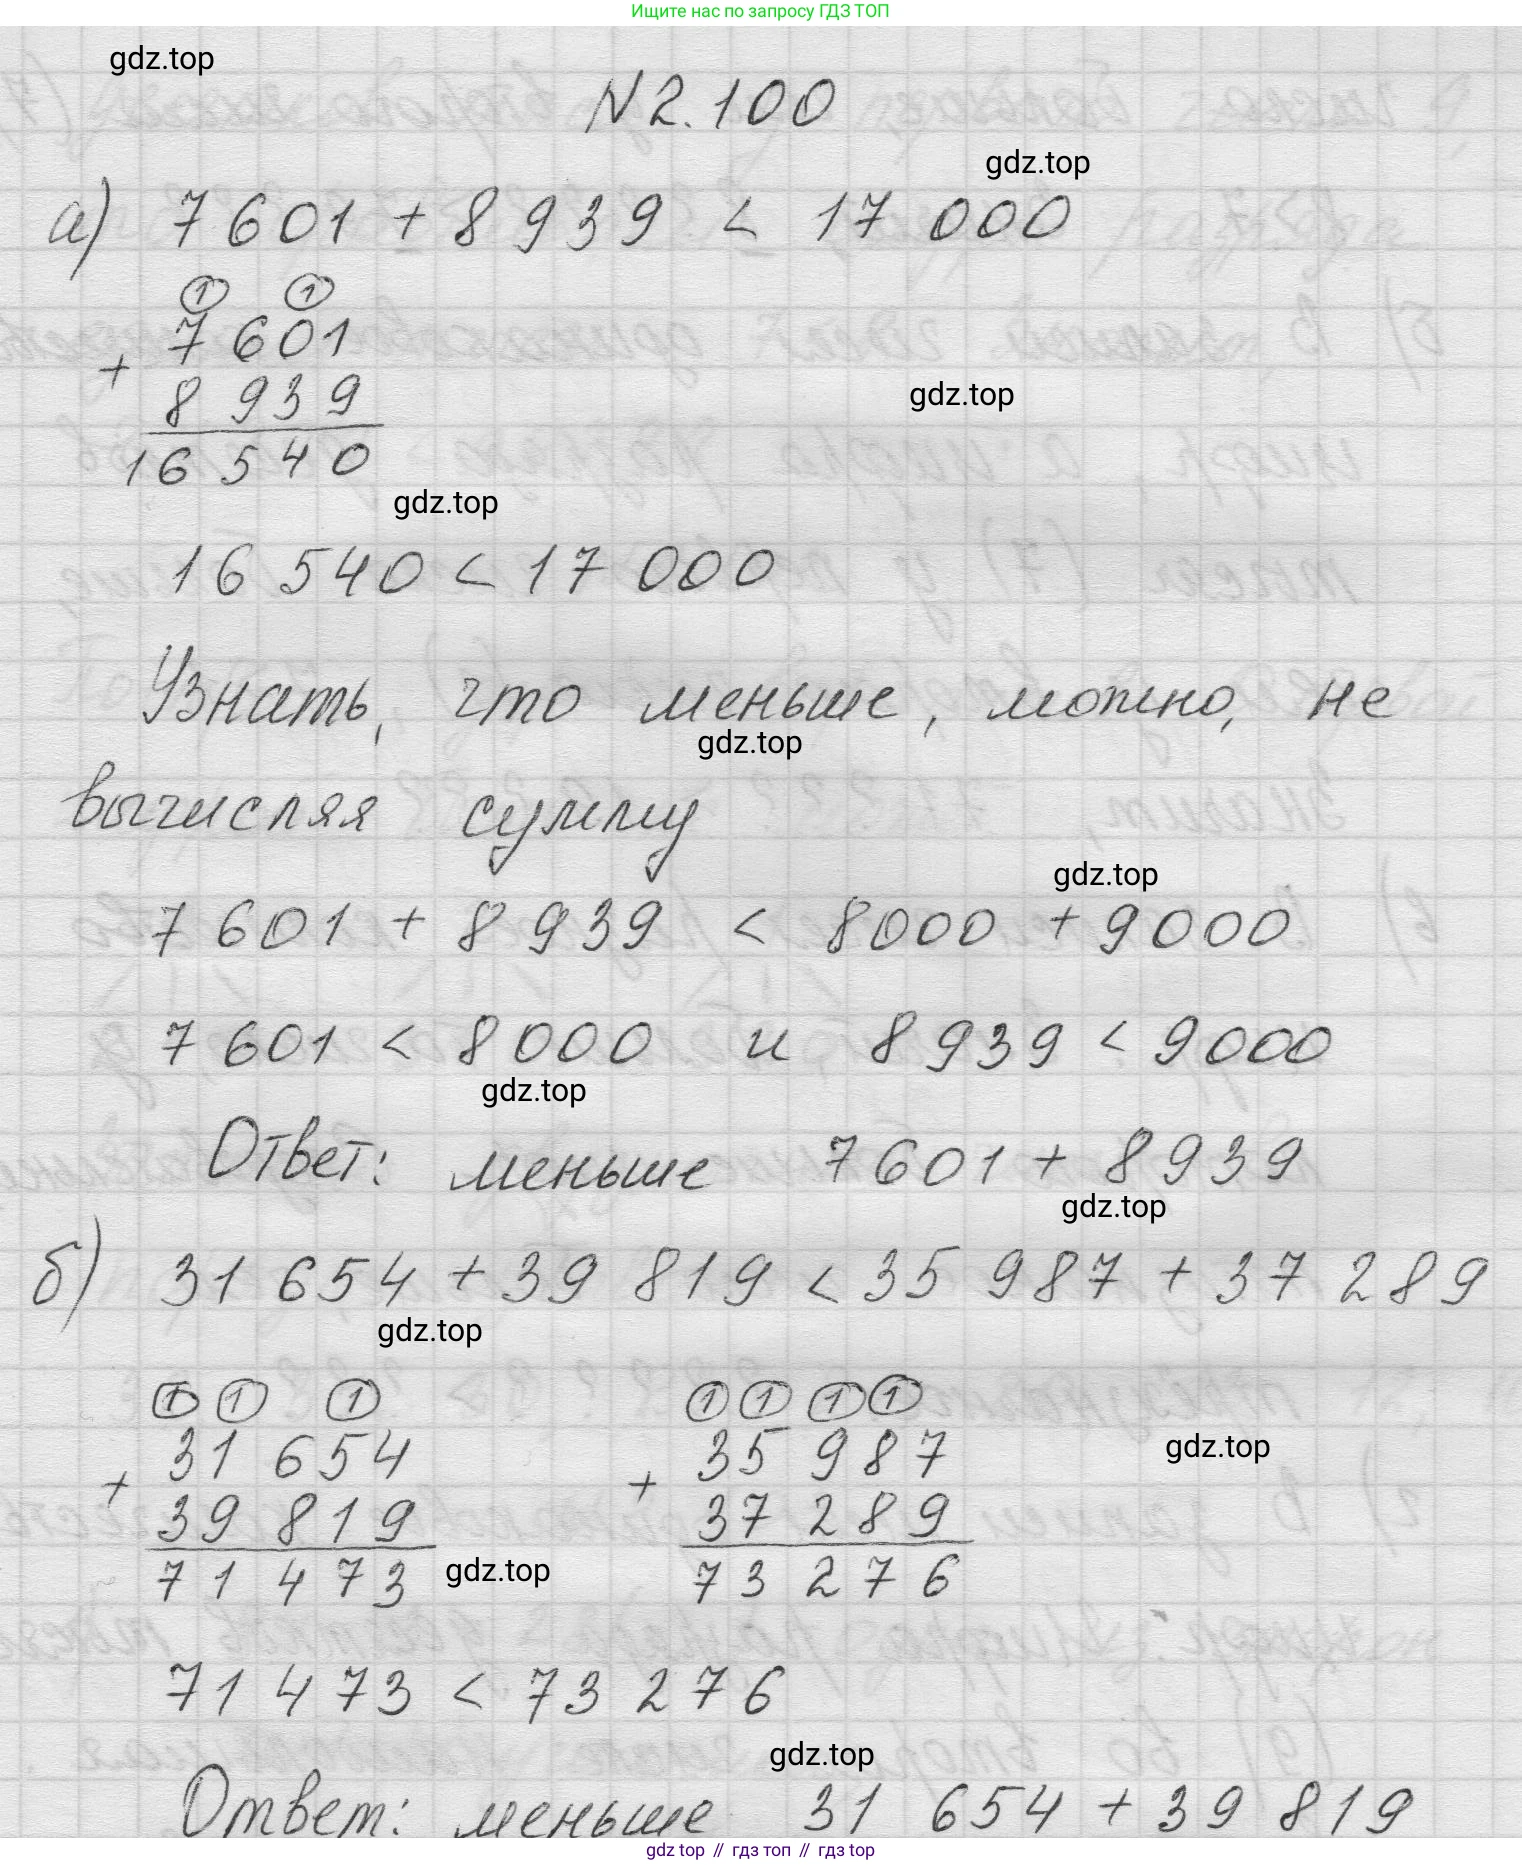 Ищите нас по запросу ГДЗ ТОП
gdz.top
N 2.100
gdz.top
а) 7 601 + 8 939 < 17 000
1 1
7 601
+
8 939
gdz.top
16 540
gdz.top
16 540 < 17 000
Узнать, что меньше, можно, не
gdz.top
вычисляя сумму
gdz.top
7 601 + 8 939 < 8000 + 9000
7 601 < 8000 и 8 939 < 9000
gdz.top
Ответ: меньше 7 601 + 8 939
gdz.top
б) 31 654 + 39 819 < 35 987 + 37 289
gdz.top
1 1 1 1 1 1 1
31 654 35 987
gdz.top
+ +
39 819 37 289
71 473 73 276
gdz.top
71 473 < 73 276
gdz.top
Ответ: меньше 31 654 + 39 819
gdz top // гдз топ // гдз top